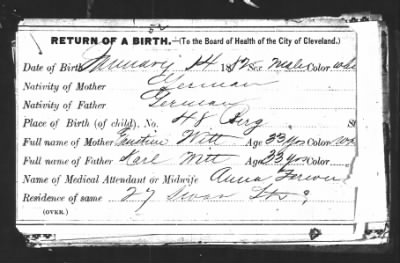 52
RETURN OF A BIRTH.—(To the Board of Health of the City of Cleveland.)
Date of Birth January 14 18 Sex Male Color whi
Nativity of Mother German
Nativity of Father German
Place of Birth (of child). No. 48 Berg St
Full name of Mother Witt Age 33 yrs Color wh
Full name of Father Karl Witt Age 33 yrs Color
Name of Medical Attendant or Midwife Anna
Residence of same 27 Swan St
(OVER.)